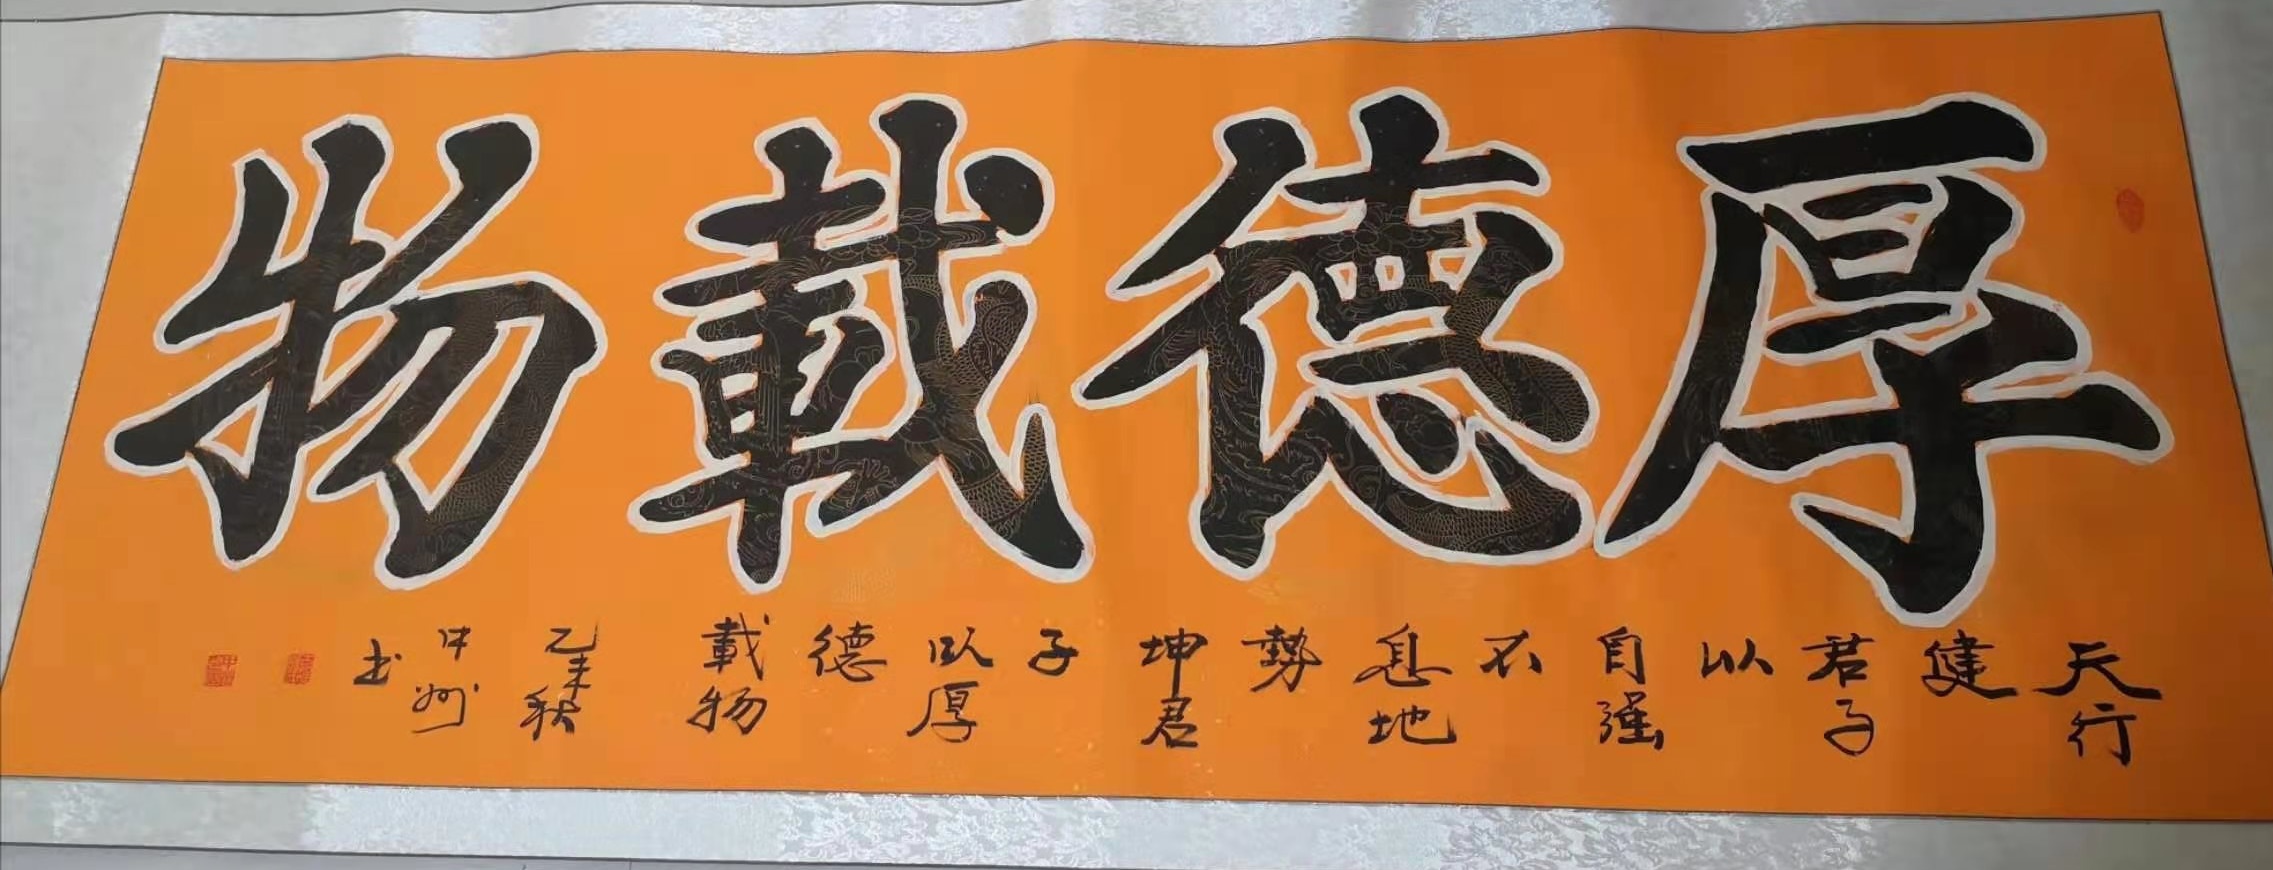 厚德載物
天行
健
君子
以
自强
不
息地
勢
坤君
子
以厚
德
載物
乙未秋
中州
书